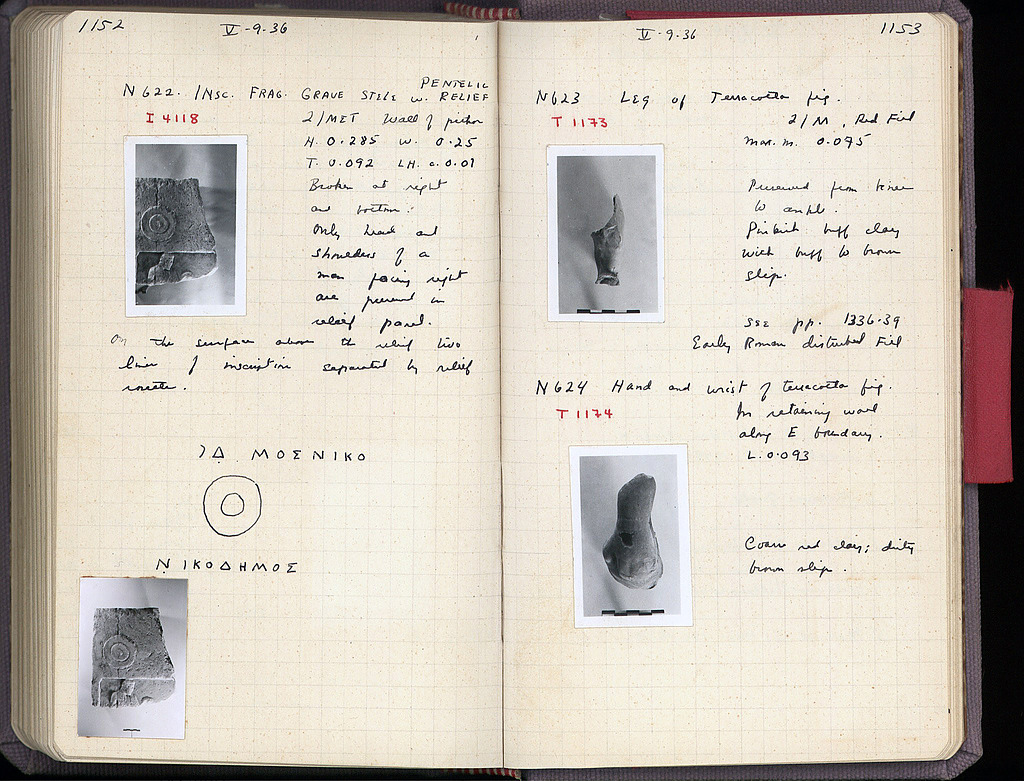 1152
V-9-36
N 622. INSC. FRAG. GRAVE STELE W. RELIEF
PENTELIC
I 4118
2/MET Wall of pithos
H. 0.285 W. 0.25
T. 0.092 LH. c. 0.01
Broken at right
and bottom.
Only head and
shoulders of a
man facing right
are preserved in
relief panel.
On the surface above the relief two
lines of inscription separated by relief
rosette.
ΜΟΣΝΙΚΟ
ΝΙΚΟΔΗΜΟΣ
V-9-36
1153
N 623 LEG of Terracotta fig.
T 1173
2/M, Red Fill
max. m. 0.095
Preserved from knee
to ankle.
Pinkish buff clay
with buff to brown
slip.
SEE pp. 1336-39
Early Roman disturbed Fill
N 624 Hand and wrist of terracotta fig.
T 1174
In retaining wall
along E boundary.
L. 0.093
Coarse red clay; dirty
brown slip.